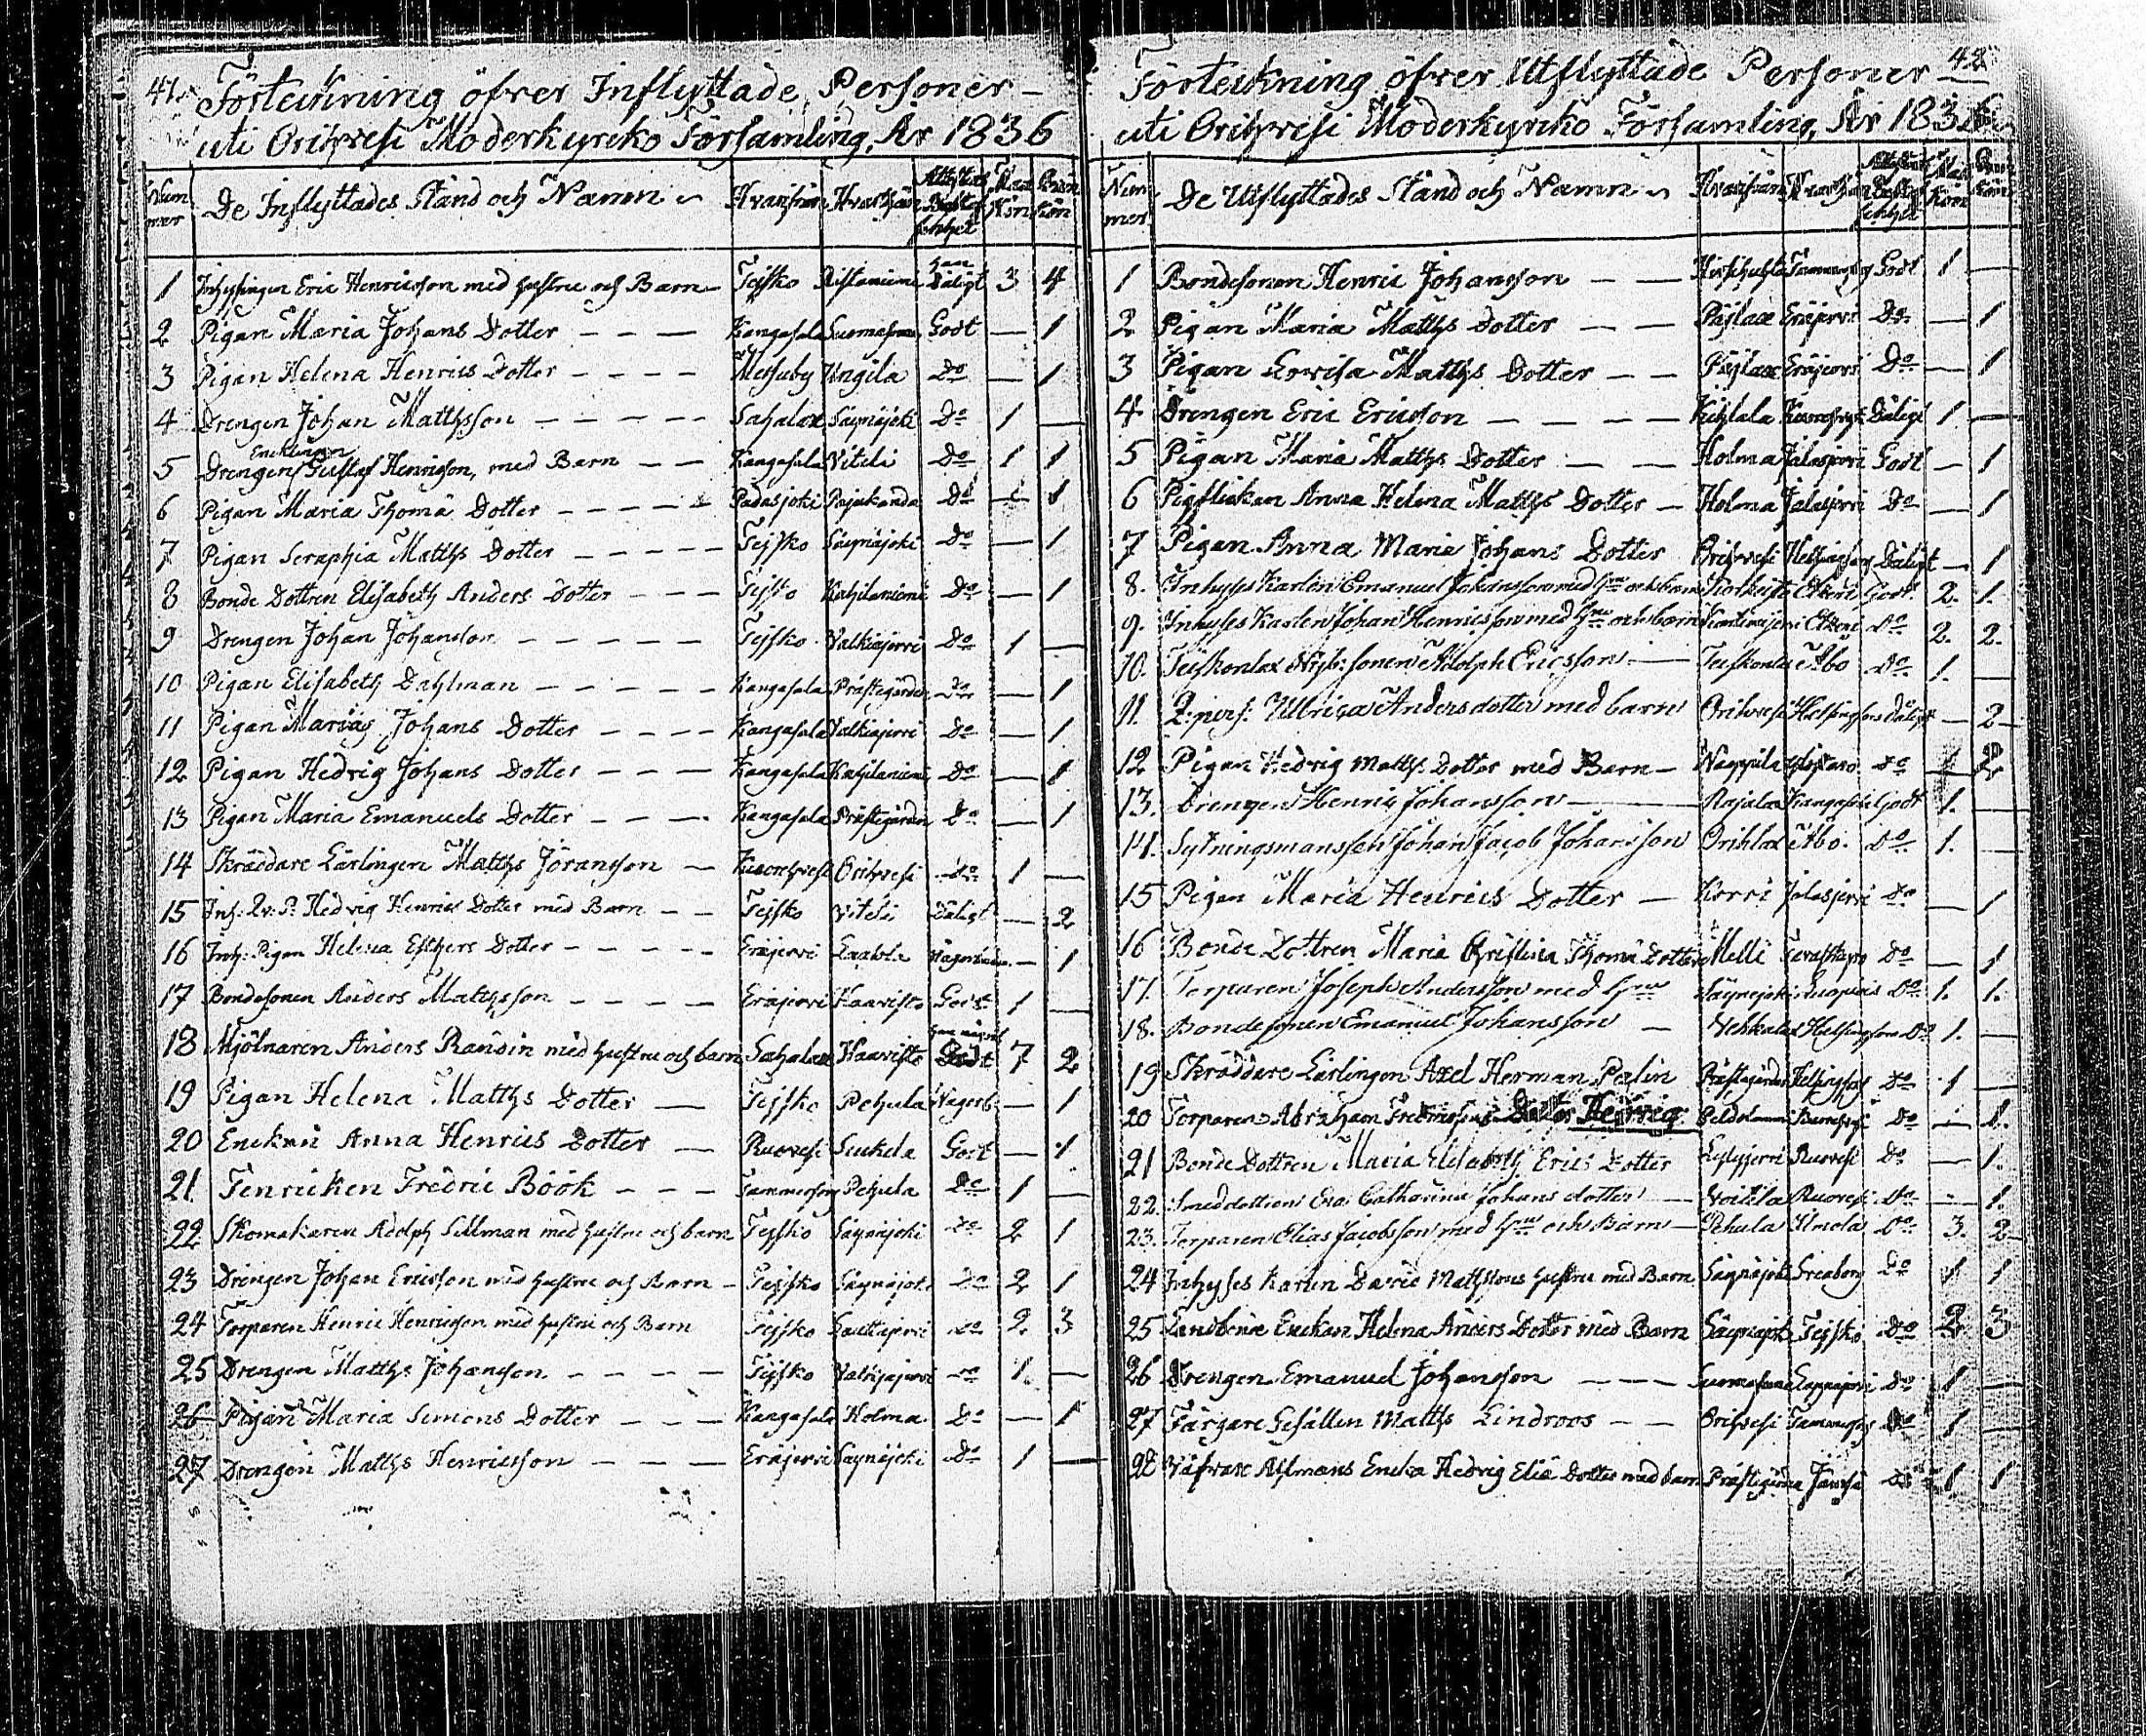 41.
Förteckning öfver Inflyttade Personer
uti Orihvesi Moderkyrcko Församling, År 1836
Num mer De Inflyttades Stånd och Namn Hvarifrån Hvarthän Attestens Beskaffenhet Man Kön Qvin Kön
1 Inhysingen Eric Henricsson med hustru och Barn Tejsko Ristaniemi han Dåligt 3 4
2 Pigan Maria Johans Dotter — — — Kangasala Suomasema Godt — 1
3 Pigan Helena Henrics Dotter — — — — Messuby Ungila Do — 1
4 Drengen Johan Matthsson — — — — — Sahalax Säynäjoki Do 1 —
5 Drengen Encklingen Gustaf Henricsson, med Barn — — Kangasala Viteli Do 1 1
6 Pigan Maria Thomä Dotter — — — — — Padasjoki Pajukanda Do — 1
7 Pigan Seraphia Matths Dotter — — — — — Tejsko Säynäjoki Do — 1
8 Bonde Dottren Elisabeth Anders Dotter — — — Tejsko Kahilaniemi Do — 1
9 Drengen Johan Johansson — — — — — Tejsko Valkiajervi Do 1 —
10 Pigan Elisabeth Dahlman — — — — — Kangasala Prästegården Do — 1
11 Pigan Maria Johans Dotter — — — — Kangasala Valkiajervi Do — 1
12 Pigan Hedvig Johans Dotter — — — — Kangasala Kahilaniemi Do — 1
13 Pigan Maria Emanuels Dotter — — — — Kangasala Prästegården Do — 1
14 Skräddare Lärlingen Matths Jöransson — Kuorehvesi Orihvesi Do 1 —
15 Inh: Qv: P: Hedvig Henrics Dotter med Barn — — Tejsko Viteli Dåligt — 2
16 Inh: Pigan Helena Esthers Dotter — — — — Eräjervi — 1
17 Bondesonen Anders Matthsson — — — — Eräjervi Haavisto Godt 1 —
18 Mjölnaren Anders Randin med hustru och barn Sahalax Haavisto Godt 7 2
19 Pigan Helena Matths Dotter — Tejsko Pehula Någorl: — 1
20 Enckan Anna Henrics Dotter — Ruovesi Suckela Godt — 1
21 Fenricken Fredric Böök — — — Tammerfors Pehula Do 1 —
22 Skomakaren Adolph Sellman med hustru och barn Tejsko Säynäjoki Do 2 1
23 Drengen Johan Ericsson med hustru och Barn — Tejsko Säynäjoki Do 2 1
24 Torparen Henric Henricsson med hustru och Barn Tejsko Do 2 3
25 Drengen Matths Johansson — — — — Tejsko Valkiajervi Do 1 —
26 Pigan Maria Simons Dotter — — — Kangasala Holma Do — 1
27 Drengen Matths Henricsson — — — Eräjervi Säynäjoki Do 1 —
42
Förteckning öfver Utflyttade Personer
uti Orihvesi Moderkyrcko Församling, År 1836
Num mer De Utflyttades Stånd och Namn Hvarifrån Hvarthän Attestens Beskaffenhet Man Kön Qvin Kön
1 Bondesonen Henric Johansson — — Tammerfors Godt 1 —
2 Pigan Maria Matths Dotter — — Päjlax Eräjervi Do — 1
3 Pigan Lovisa Matths Dotter — — Päjlax Eräjervi Do — 1
4 Drengen Eric Ericsson — — — — Dåligt 1 —
5 Pigan Maria Matths Dotter — — Holma Jalasjervi Godt — 1
6 Pigflickan Anna Helena Matths Dotter — Holma Jalasjervi Do — 1
7 Pigan Anna Maria Johans Dotter Orihvesi Helsingfors Dåligt — 1
8. Inhyses Karlen Emanuel Johansson med Hru och barn Etseri Godt 2. 1.
9. Inhyses Karlen Johan Henricsson med Hru och barn Etseri Do 2. 2.
10. Teiskonlax Nyb:sonen Adolph Ericsson — Teiskonlax Åbo Do 1. —
11. Q:pers: Ulbrica Anders dotter med barn Orihvesi Helsingfors Dåligt — 2
12 Pigan Hedvig Matths Dotter med Barn — Nappila Ylistaro Do 1 2
13. Drengen Henric Johansson — Rajalax Kangasala Godt 1. —
14. Sytningsmanssen Johan Jacob Johansson Orihlax Åbo. Do 1. —
15 Pigan Maria Henrics Dotter — Korri Jalasjervi Do — 1
16 Bonde Dottren Maria Christina Thomä Dotter Melli Tavastkyro Do — 1
17. Torparen Joseph Andersson med Hru Säynejoki Kuopois Do 1. 1.
18. Bondesonen Emanuel Johansson — Vehkalax Helsingfors Do 1. —
19 Skräddare Lärlingen Axel Herman Palin Prästegården Helsingfors Do 1 —
20 Torparen Abraham Fredricssons Dotter Hedvig Do — 1.
21 Bonde Dottren Maria Elisabeth Erics Dotter Ruovesi Do — 1.
22. Smeddottren Eva Catharina Johans dotter — Voitila Ruovesi Do — 1.
23. Torparen Elias Jacobsson med Hru och Barn — Pehula Ilmola Do 3. 2
24 Inhyses Karlen David Matthssons hustru med Barn Säynäjoki Sveaborg Do 1 1
25 Enckan Helena Anders Dotter med Barn Säynäjoki Tejsko Do 2 3
26 Drengen Emanuel Johansson — — — Suomasema Lappajervi Do 1 —
27 Färgare Gesällen Matths Lindroos — — Orihvesi Tammerfors Do 1 —
28 Väfvare Ahlmans Encka Hedvig Eliä Dotter med barn Prästegården Jämsä Do 1 1